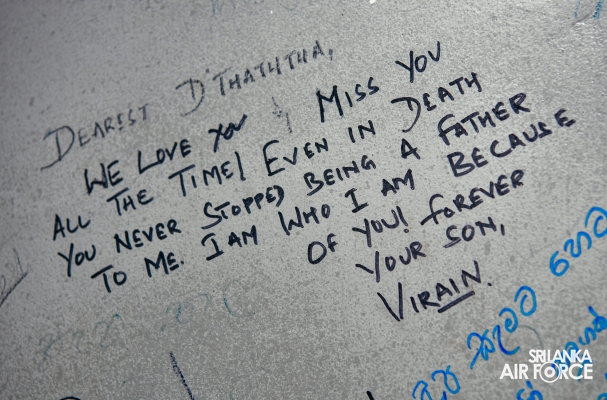 DEAREST D'THATHTHA,
WE LOVE YOU & MISS YOU
ALL THE TIME! EVEN IN DEATH
YOU NEVER STOPPED BEING A FATHER
TO ME. I AM WHO I AM BECAUSE
OF YOU! FOREVER
YOUR SON,
VIRAIN.
SRI LANKA
AIR FORCE